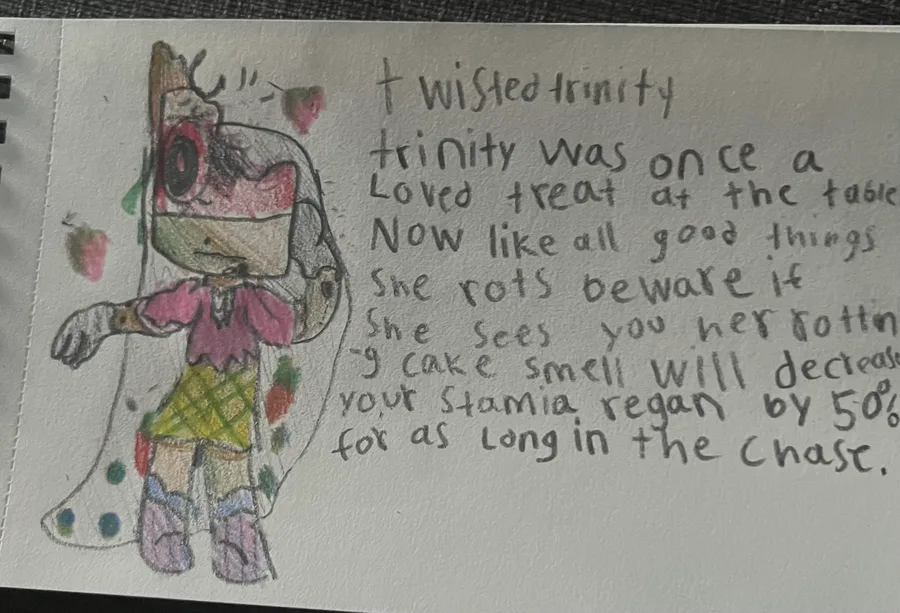 twisted trinity
trinity was once a
Loved treat at the table
Now like all good things
She rots beware if
She sees you her rottin
-g cake smell will decrease
your Stamia regan by 50%
for as Long in the chase.